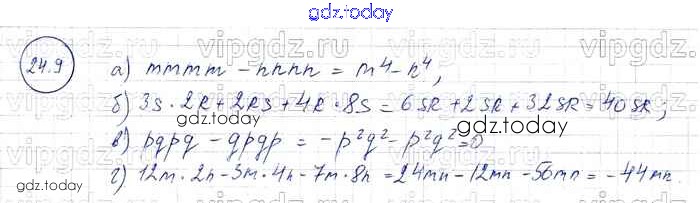 gdz.today
24.9
а) mmmm - nnnn = m⁴ - n⁴,
б) 3s · 2R + 2RS + 4R · 8s = 6SR + 2SR + 32SR = 40SR;
gdz.today
в) pqpq - qpqp = -p²q² - p²q² = 0
gdz.today
г) 12m · 2n - 3m · 4n - 7m · 8n = 24mn - 12mn - 56mn = -44mn.